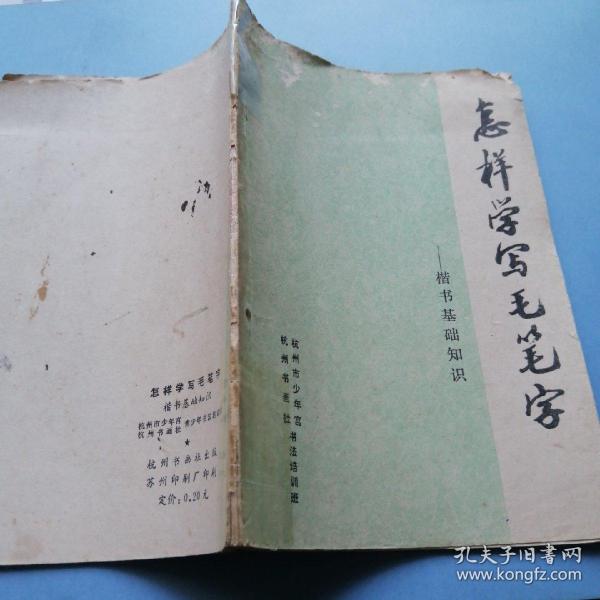 怎样学写毛笔字
——楷书基础知识
杭州市少年宫书法培训班
杭州书画社
怎样学写毛笔字
楷书基础知识
杭州市少年宫
杭州书画社
青少年书法
★
杭州书画社出版
苏州印刷厂印刷
定价:0.20元
孔夫子旧书网
www.kongfz.com